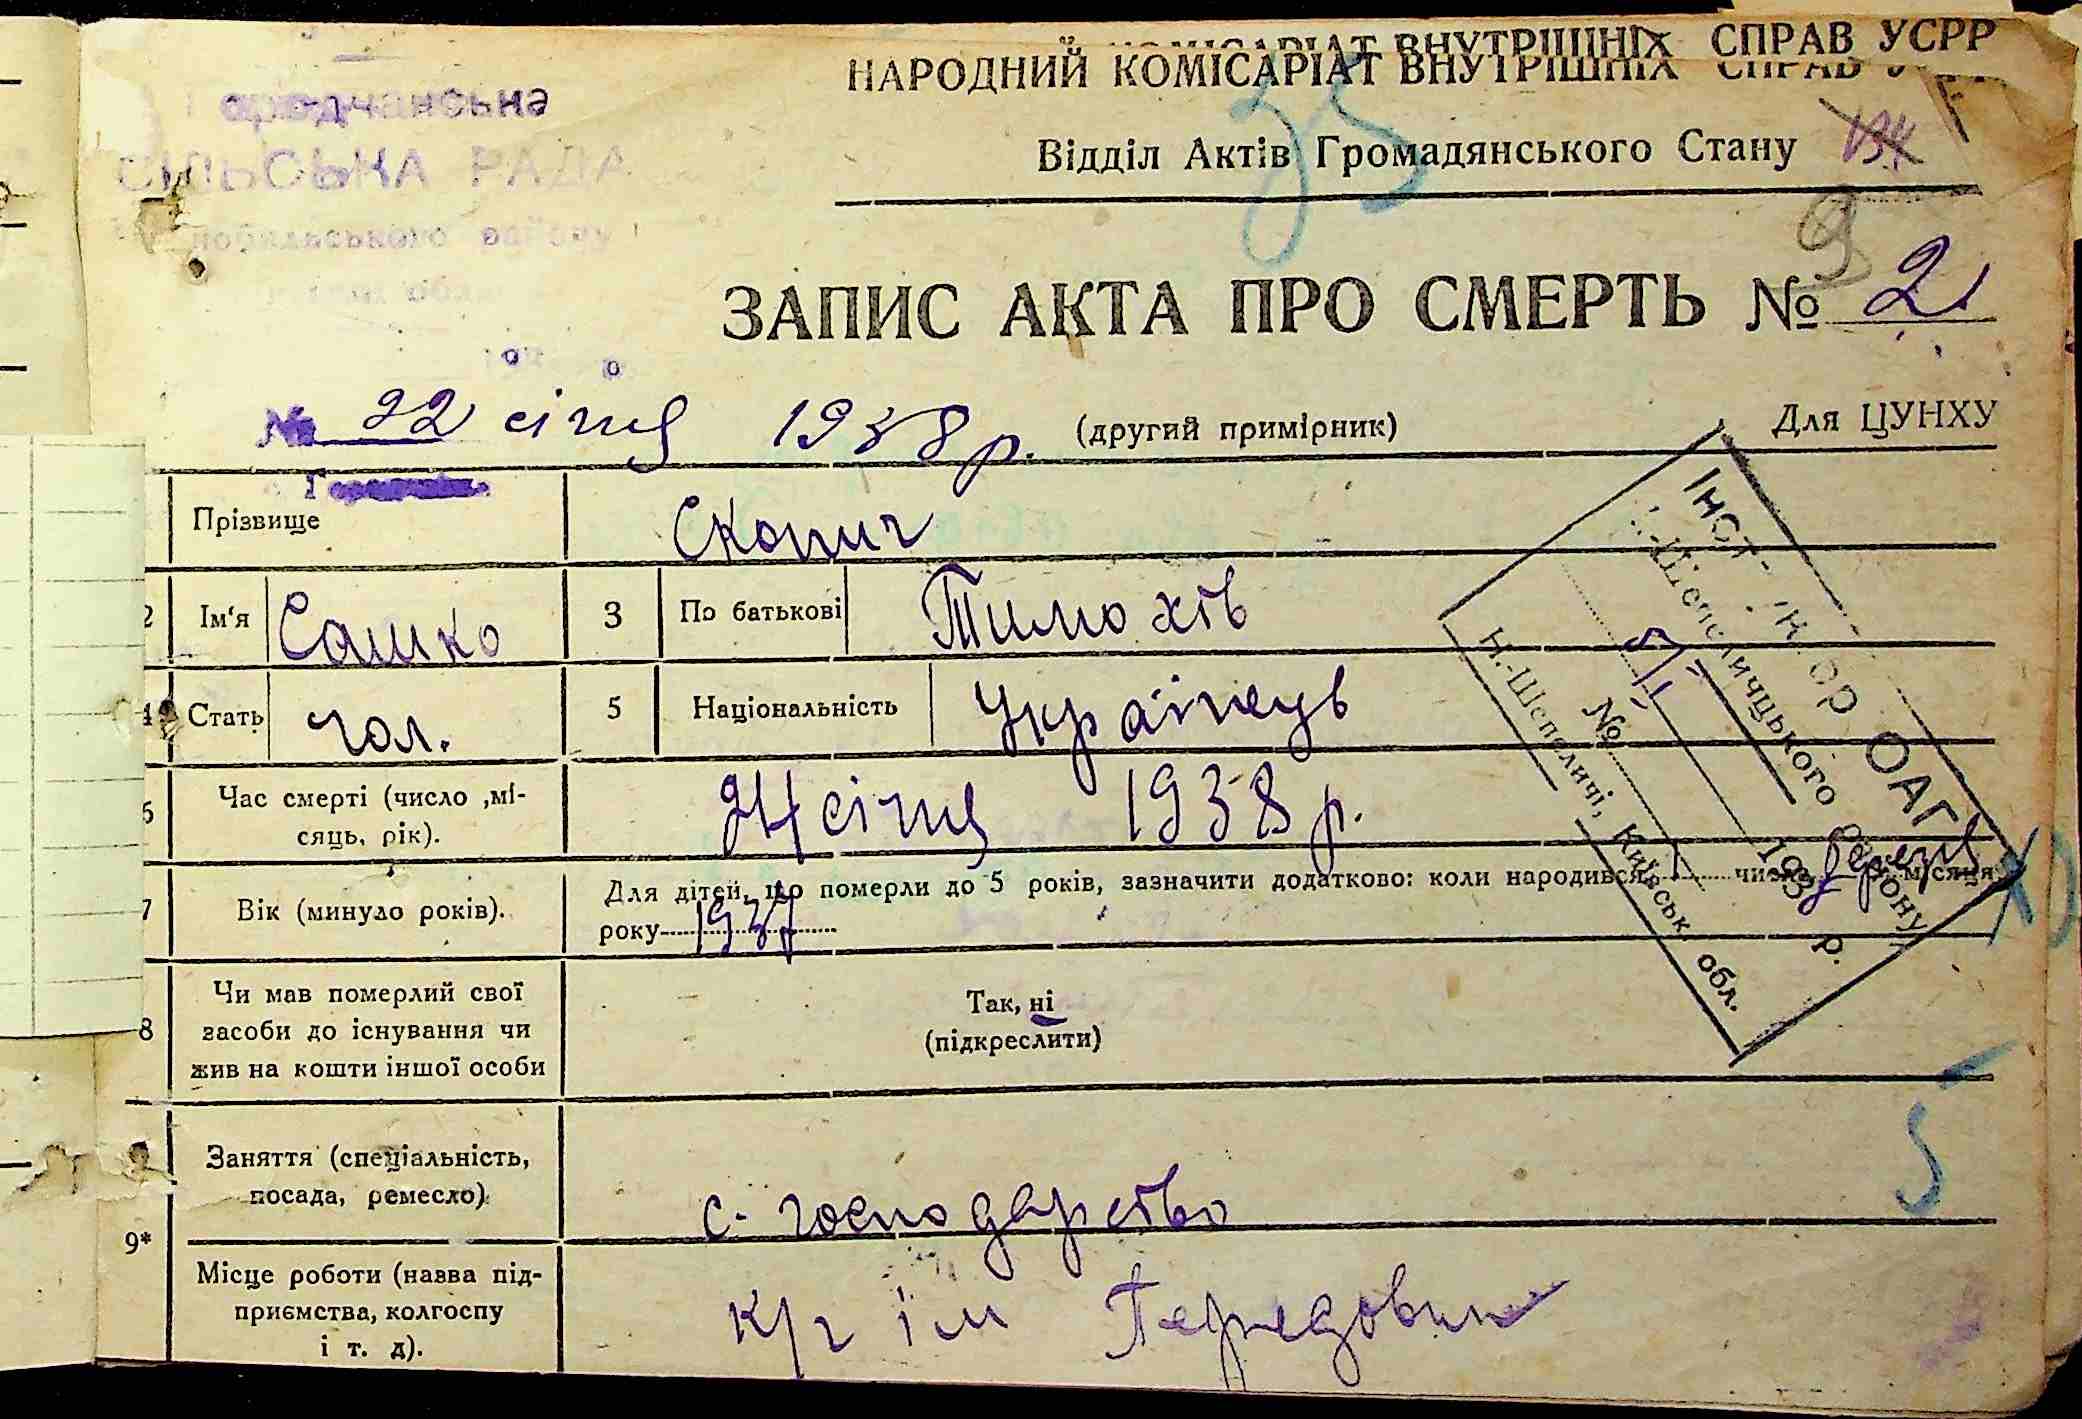 НАРОДНИЙ КОМІСАРІАТ ВНУТРІШНІХ СПРАВ УСРР
Відділ Актів Громадянського Стану
35
134
СІЛЬСЬКА РАДА
району
ЗАПИС АКТА ПРО СМЕРТЬ № 2
№ 22 січня 1938 р. (другий примірник) Для ЦУНХУ
Прізвище Скопич
2 Ім'я Сашко 3 По батькові Тимохів
4 Стать чол. 5 Національність Українець
6 Час смерті (число ,мі-
сяць, рік). 24 січня 1938 р.
7 Вік (минуло років). Для дітей, що померли до 5 років, зазначити додатково: коли народився числа березня місяця
року 1937
8 Чи мав померлий свої
засоби до існування чи
жив на кошти іншої особи
Так, ні
(підкреслити)
5
9* Заняття (спеціальність,
посада, ремесло) с. господарство
Місце роботи (назва під-
приємства, колгоспу
і т. д). к/г ім Передовик
ОАГС
Н.-Шепеличцького району
№ 193 р.
Н.-Шепеличі, Київськ. обл.